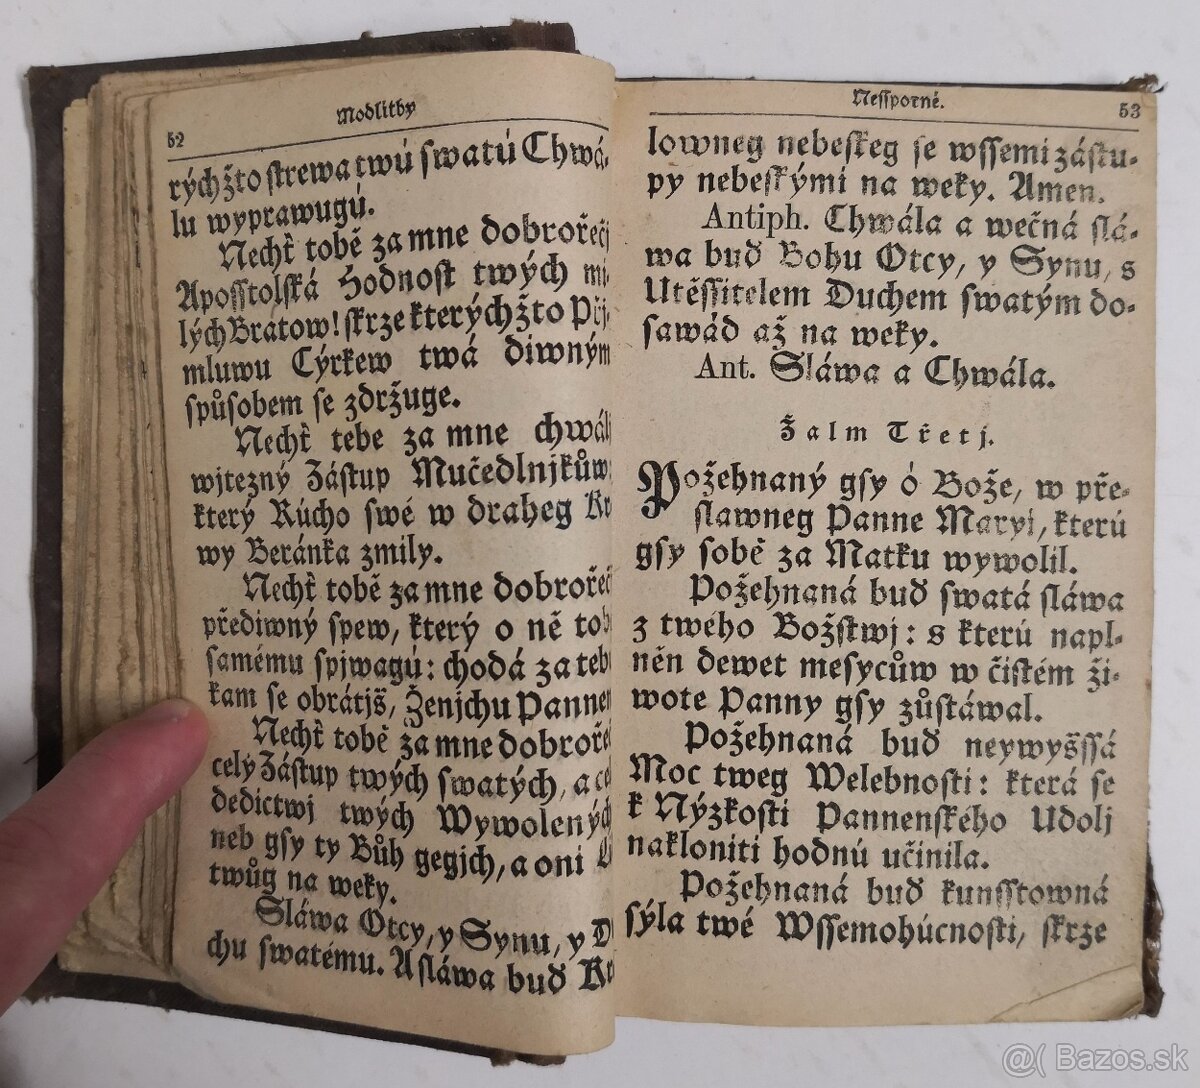 52
Modlitby
rýchžto strewa twú swatú Chwá-
lu wyprawugú.
Nechť tobě za mne dobrořečj
Aposstolská Hodnost twých mi-
lých Bratow! skrze kterýchžto Přj-
mluwu Cýrkew twá diwným
spůsobem se zdržuge.
Nechť tebe za mne chwálj
wjtezný Zástup Mučedlnjkůw,
který Rúcho swé w draheg Kr
wy Beránka zmily.
Nechť tobě za mne dobrořeč
přediwný spew, který o ně tob
samému spjwagú: chodá za teb
kam se obrátjš, Ženjchu Pannen
Nechť tobě za mne dobrořeč
celý Zástup twých swatých, a cel
dedictwj twých Wywolených
neb gsy ty Bůh gegjch, a oni
twůg na weky.
Sláwa Otcy, y Synu, y D
chu swatému. A sláwa buď Kr
Nessporné.
53
lowneg nebeskeg se wssemi zástu-
py nebeskými na weky. Amen.
Antiph. Chwála a wečná slá-
wa buď Bohu Otcy, y Synu, s
Utěssitelem Duchem swatým do-
sawád až na weky.
Ant. Sláwa a Chwála.
Žalm Třetj.
Požehnaný gsy ó Bože, w pře-
slawneg Panne Maryi, kterú
gsy sobě za Matku wywolil.
Požehnaná buď swatá sláwa
z twého Božstwj: s kterú napl-
něn dewet mesycůw w čistém ži-
wote Panny gsy zůstáwal.
Požehnaná buď neywyšssá
Moc tweg Welebnosti: která se
k Nýzkosti Pannenského Udolj
nakloniti hodnú učinila.
Požehnaná buď kunsstowná
sýla twé Wssemohúcnosti, skrze
@( Bazos.sk